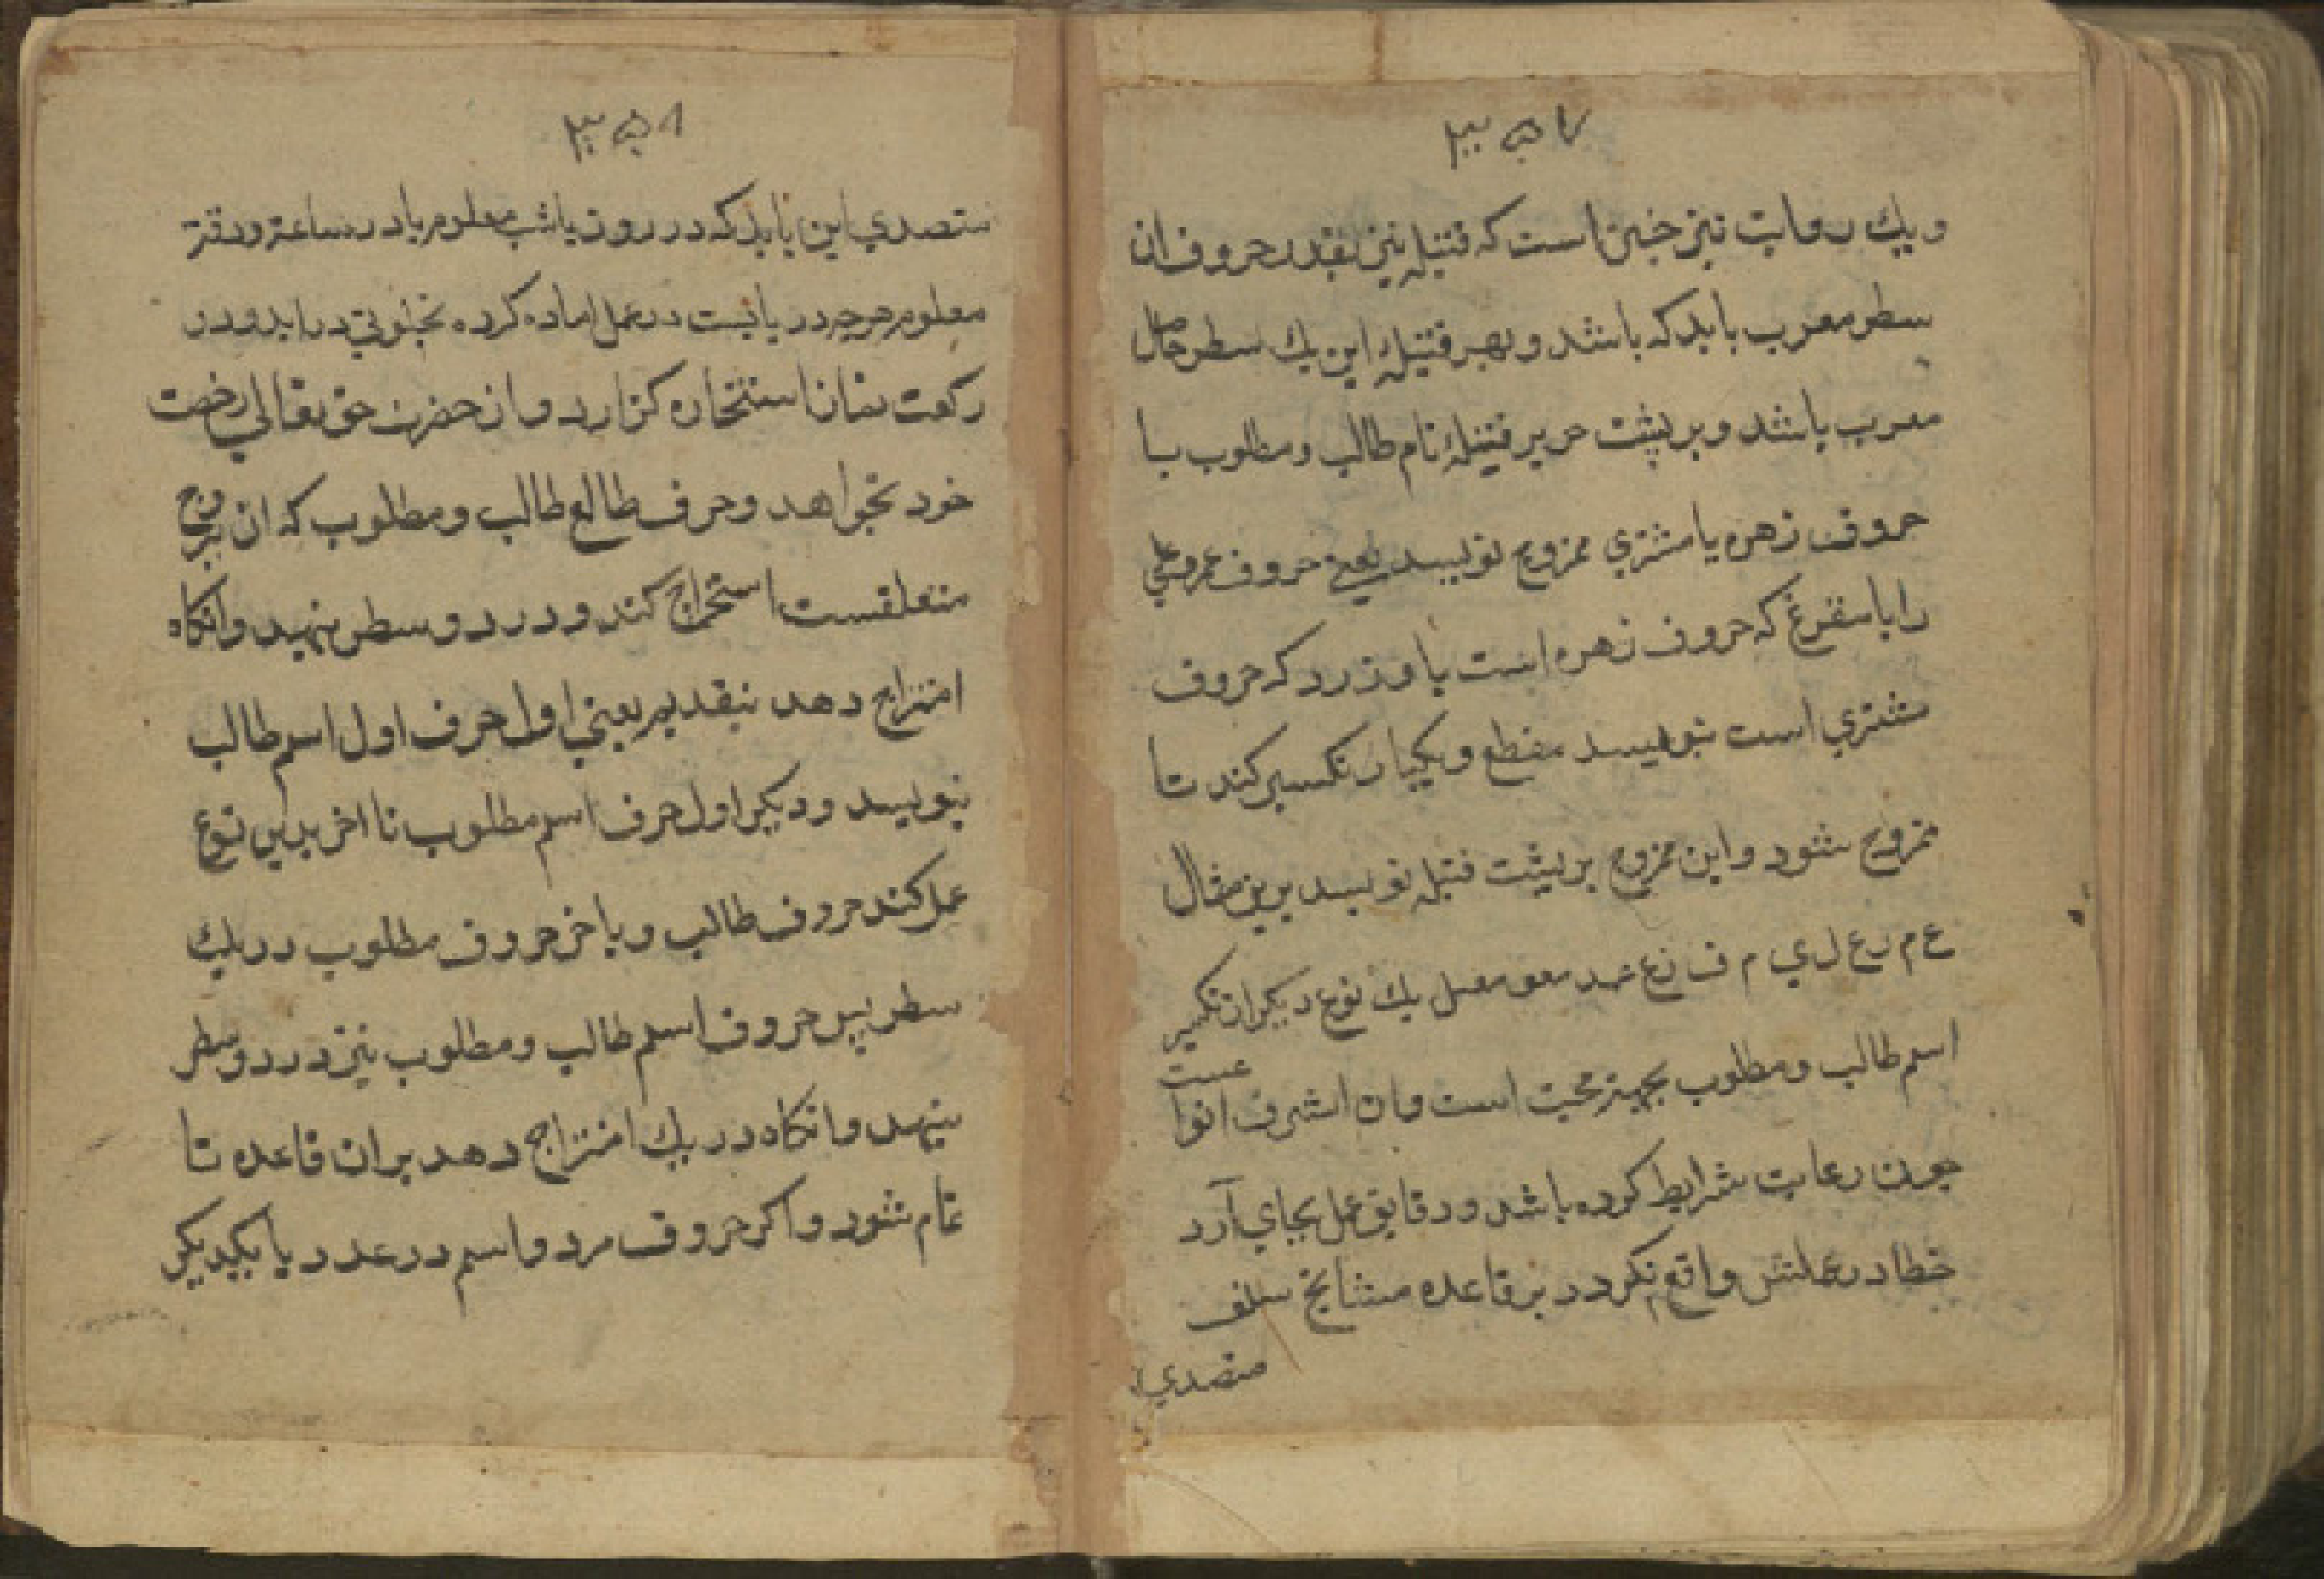 ۳۵۷
ویك روایت نیز چنین است که فتیله نیز بقدر حروف ان
سطر معرب باید که باشد و بهر فتیله این یك سطر حال
معرب باشد و بر پشت حریر فتیله نام طالب و مطلوب با
حروف زهره یا مشتری ممزوج نویسد یعنی حروف عمر و علی
را با که حروف زهره است یا که حروف
مشتری است بنویسد مقطع و یکبار تکسیر کند تا
ممزوج شود و این ممزوج بر پشت فتیله نویسد برین مثال
ع م ر ع ل ي م ف یك نوع دیکر از تکسیر
اسم طالب و مطلوب بجهة محبت است و ان اشرف انواعست
چون رعایت شرایط کرده باشد و دقایق عمل بجای آرد
خطا در عملش واقع نکردد بر قاعده مشایخ سلف
متصدي
۳۵۸
متصدي این باید که در روز یا شب معلوم یا در ساعة و دقة
معلوم هرچه دربایست در عمل اماده کرده بخلوتي دراید و دو
رکعت نماز استخاره کزارد و از حضرت حق تعالي رخصت
خود بخواهد و حرف طالع طالب و مطلوب که ان بروج
متعلقست استخراج کند و در دو سطر بنهد و انکاه
امتزاج دهد بتقدیم یعني اول حرف اول اسم طالب
بنویسد و دیکر اول حرف اسم مطلوب تا اخر بدین نوع
عمل کند حروف طالب و یا خر حروف مطلوب در یك
سطر پس حروف اسم طالب و مطلوب نیز در دو سطر
بنهد و انکاه در یك امتزاج دهد بران قاعده تا
تمام شود و اکر حروف هر دو اسم در عدد با یکدیکر